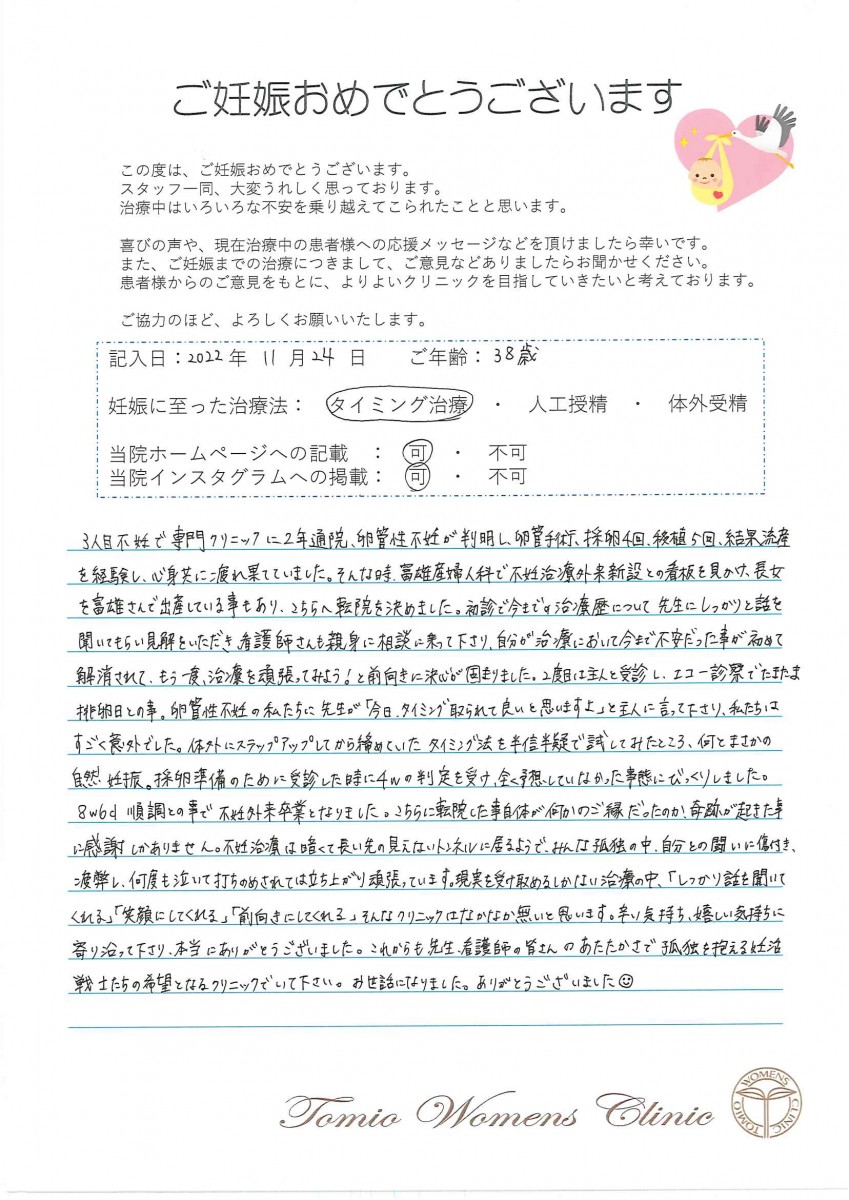 ご妊娠おめでとうございます
この度は、ご妊娠おめでとうございます。
スタッフ一同、大変うれしく思っております。
治療中はいろいろな不安を乗り越えてこられたことと思います。
喜びの声や、現在治療中の患者様への応援メッセージなどを頂けましたら幸いです。
また、ご妊娠までの治療につきまして、ご意見などありましたらお聞かせください。
患者様からのご意見をもとに、よりよいクリニックを目指していきたいと考えております。
ご協力のほど、よろしくお願いいたします。
記入日：2022年 11月24日 ご年齢：38歳
妊娠に至った治療法： タイミング治療 ・ 人工授精 ・ 体外受精
当院ホームページへの記載 ： 可 ・ 不可
当院インスタグラムへの掲載： 可 ・ 不可
3人目不妊で専門クリニックに2年通院、卵管性不妊が判明し、卵管手術、採卵4回、移植5回、結果流産
を経験し、心身共に疲れ果てていました。そんな時、富雄産婦人科で不妊治療外来新設との看板を見かけ、長女
を富雄さんで出産している事もあり、こちらへ転院を決めました。初診で今までの治療歴について先生にしっかりと話を
聞いてもらい見解をいただき、看護師さんも親身に相談に乗って下さり、自分が治療において今まで不安だった事が初めて
解消されて、もう一度、治療を頑張ってみよう！と前向きに決心が固まりました。2度目は主人と受診し、エコー診察でたまたま
排卵日との事。卵管性不妊の私たちに先生が「今日、タイミング取られて良いと思いますよ」と主人に言って下さり、私たちは
すごく意外でした。体外にステップアップしてから諦めていたタイミング法を半信半疑で試してみたところ、何とまさかの
自然妊娠。採卵準備のために受診した時に4wの判定を受け、全く予想していなかった事態にびっくりしました。
8w6d 順調との事で不妊外来卒業となりました。こちらに転院した事自体が何かのご縁だったのか、奇跡が起きた事
に感謝しかありません。不妊治療は暗くて長い先の見えないトンネルに居るようで、みんな孤独の中、自分との闘いに傷付き、
疲弊し、何度も泣いて打ちのめされては立ち上がり頑張っています。現実を受け取めるしかない治療の中、「しっかり話を聞いて
くれる」「笑顔にしてくれる」「前向きにしてくれる」そんなクリニックはなかなか無いと思います。辛い気持ち、嬉しい気持ちに
寄り沿って下さり、本当にありがとうございました。これからも先生、看護師の皆さんのあたたかさで孤独を抱える妊活
戦士たちの希望となるクリニックでいて下さい。お世話になりました。ありがとうございました☺
Tomio Womens Clinic
TOMIO WOMENS CLINIC